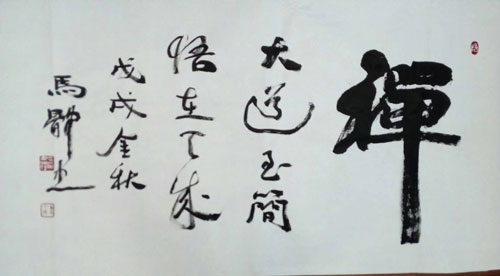 禪
大道至簡
悟在天成
戊戌金秋
馬